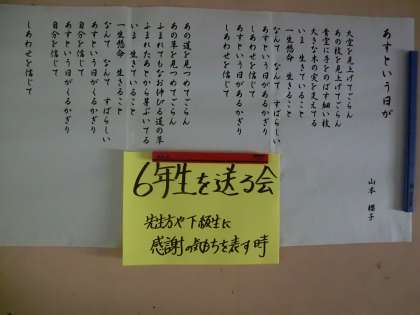 あすという日が
山本 瓔子
大空を見上げてごらん
あの枝を見上げてごらん
青空に手をのばす細い枝
大きな木の実を支えてる
いま 生きていること
一生懸命 生きること
なんて なんて すばらしい
あすという日があるかぎり
しあわせを信じて
あすという日があるかぎり
しあわせを信じて
あの道を見つめてごらん
あの草を見つめてごらん
ふまれてもなお伸びる道の草
ふまれたあとから芽ぶいてる
いま 生きていること
一生懸命 生きること
なんて なんて すばらしい
あすという日がくるかぎり
自分を信じて
あすという日がくるかぎり
自分を信じて
しあわせを信じて
6年生を送る会
先生方や下級生に
感謝の気もちを表す時